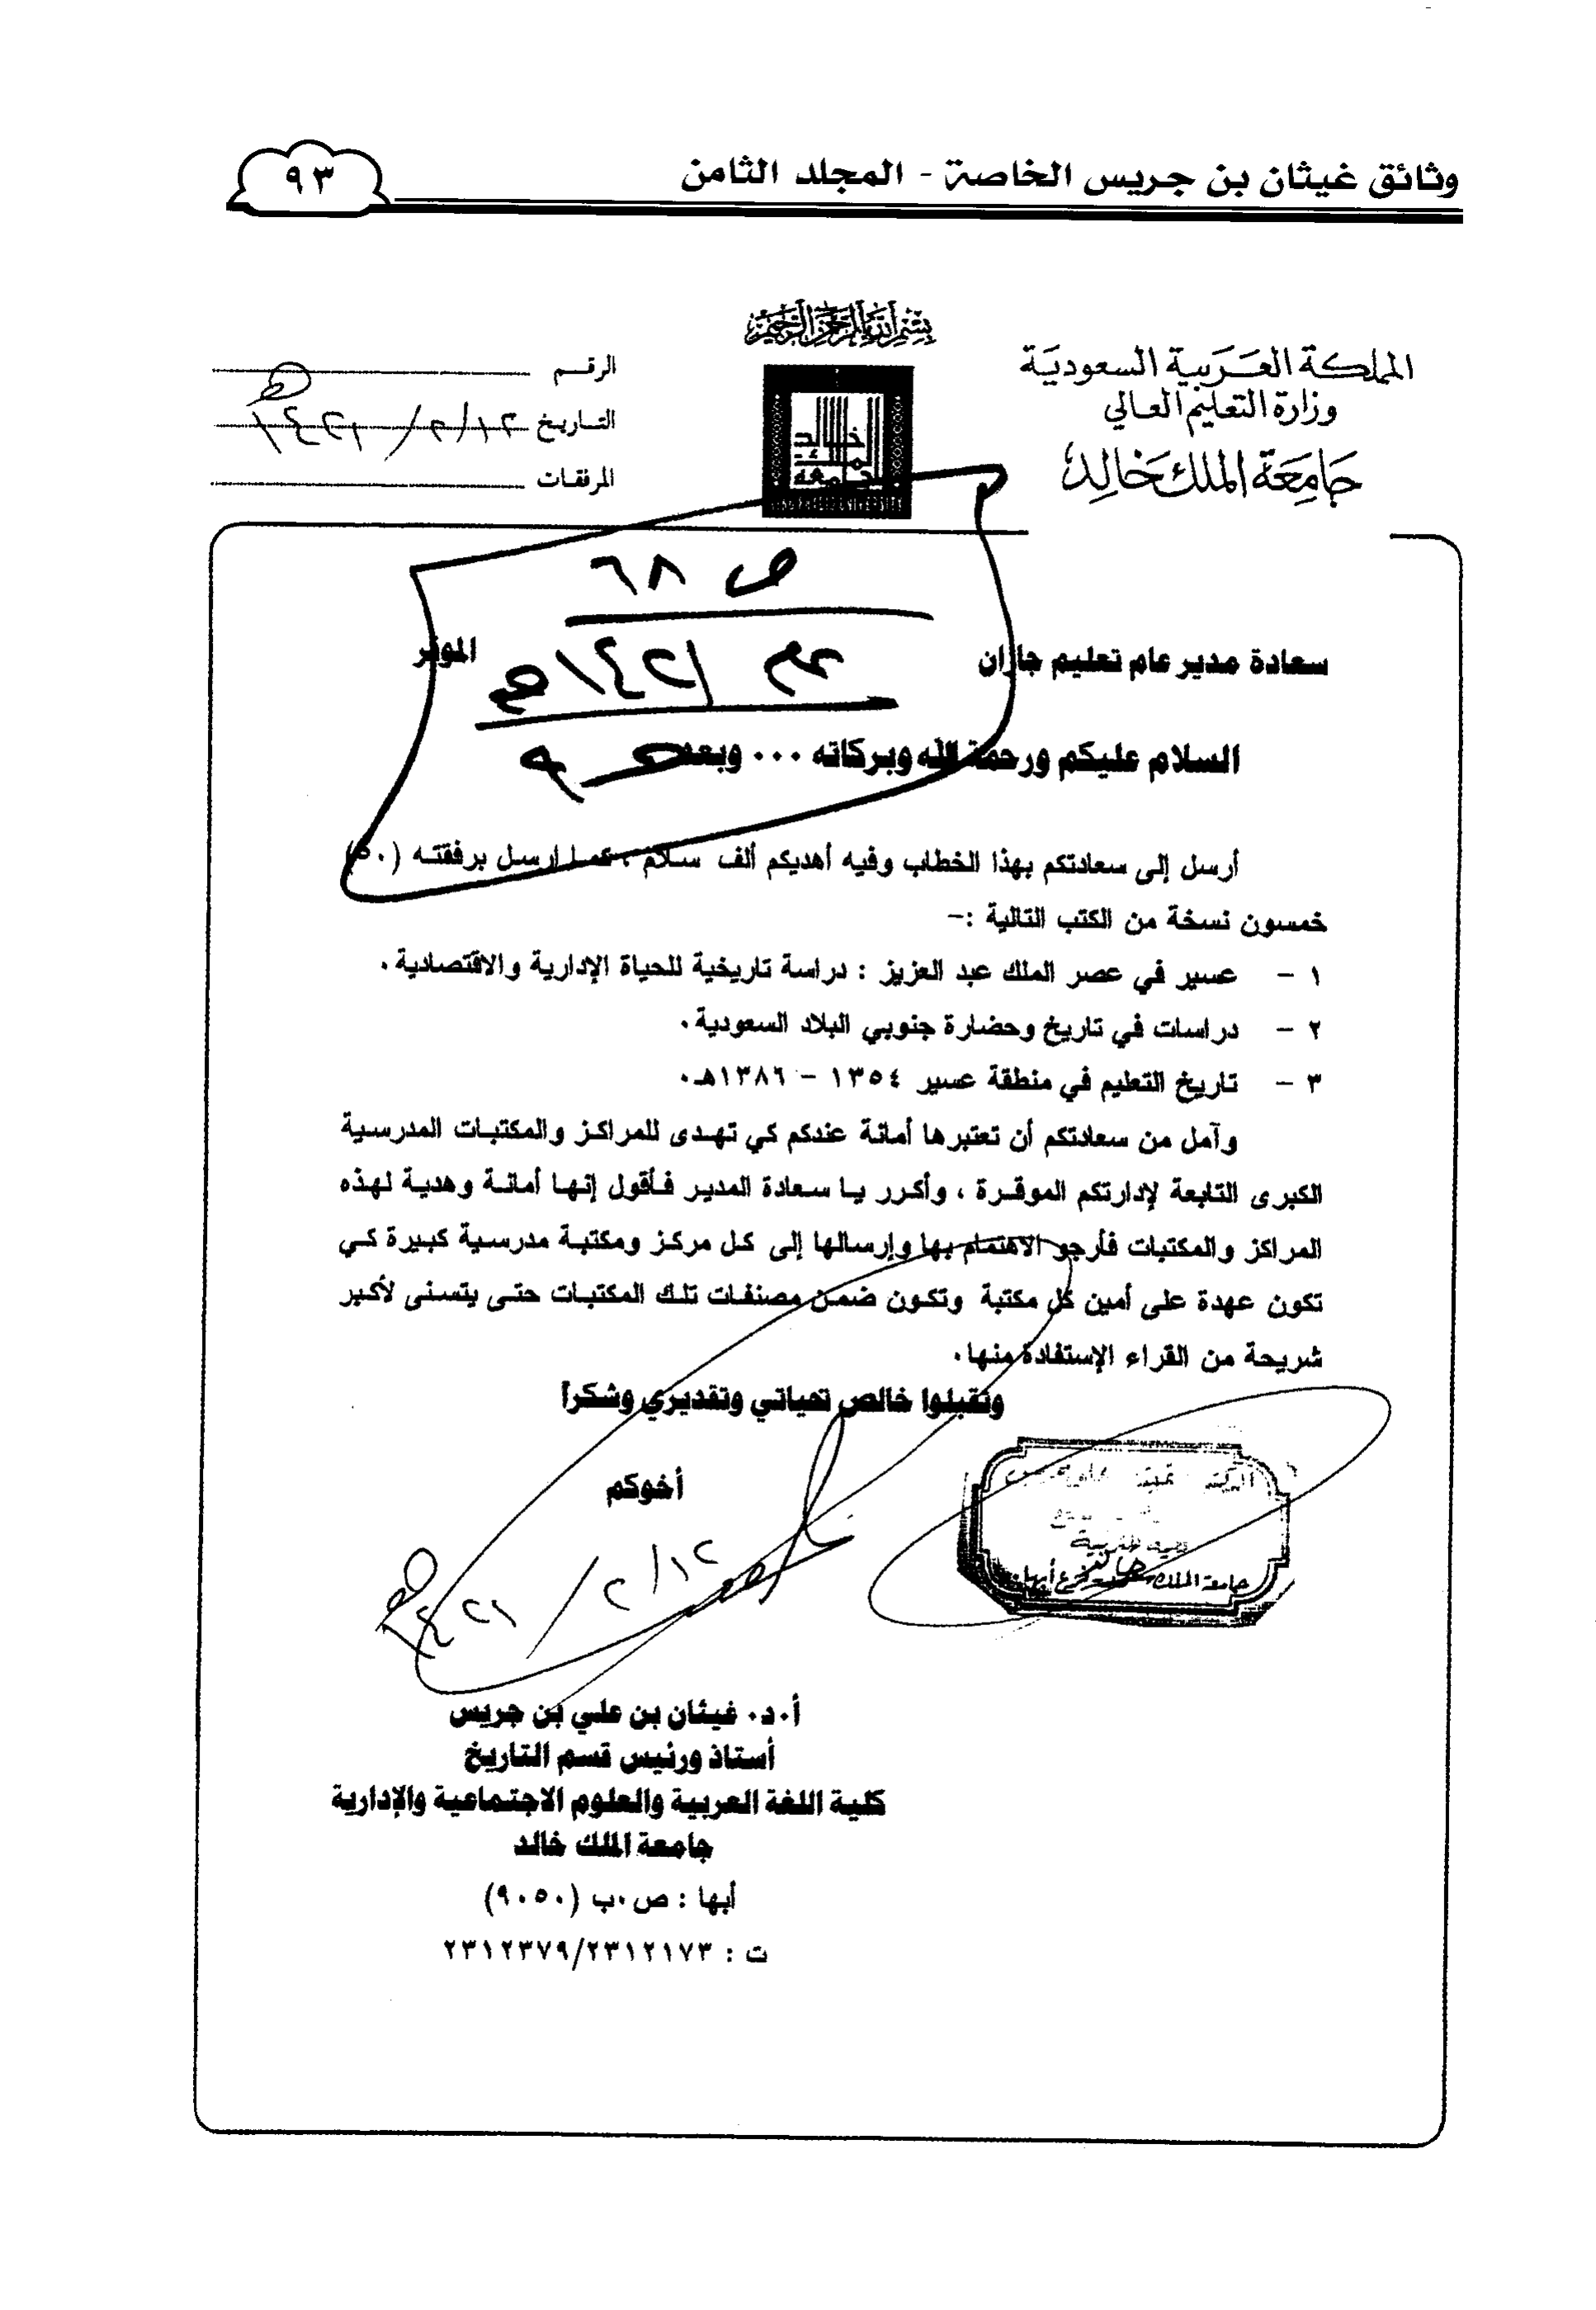 وثائق غيثان بن جريس الخاصة - المجلد الثامن
٩٣
بسم الله الرحمن الرحيم
المملكة العربية السعودية
وزارة التعليم العالي
جامعة الملك خالد
جامعة الملك خالد
KING KHALID UNIVERSITY
الرقم
التاريخ ١٢/٢/١٤٢١هـ
المرفقات
ص ٦٨
سعادة مدير عام تعليم جازان الموقر
السلام عليكم ورحمة الله وبركاته ... وبعد
أرسل إلى سعادتكم بهذا الخطاب وفيه أهديكم ألف سلام ، كما ارسل برفقته (٥٠)
خمسون نسخة من الكتب التالية :-
١ - عسير في عصر الملك عبد العزيز : دراسة تاريخية للحياة الإدارية والاقتصادية .
٢ - دراسات في تاريخ وحضارة جنوبي البلاد السعودية .
٣ - تاريخ التعليم في منطقة عسير ١٣٥٤ - ١٣٨٦هـ .
وآمل من سعادتكم أن تعتبرها أمانة عندكم كي تهدى للمراكز والمكتبات المدرسية
الكبرى التابعة لإدارتكم الموقرة ، وأكرر يا سعادة المدير فأقول إنها أمانة وهدية لهذه
المراكز والمكتبات فأرجو الاهتمام بها وإرسالها إلى كل مركز ومكتبة مدرسية كبيرة كي
تكون عهدة على أمين كل مكتبة وتكون ضمن مصنفات تلك المكتبات حتى يتسنى لأكبر
شريحة من القراء الإستفادة منها .
وتقبلوا خالص تحياتي وتقديري وشكراً
أخوكم
١٢/٢/١٤٢١هـ
جامعة الملك خالد فرع أبها
أ.د. غيثان بن علي بن جريس
أستاذ ورئيس قسم التاريخ
كلية اللغة العربية والعلوم الاجتماعية والإدارية
جامعة الملك خالد
أبها : ص.ب (٩٠٥٠)
ت : ٢٣١٢٣٧٩/٢٣١٢١٧٣